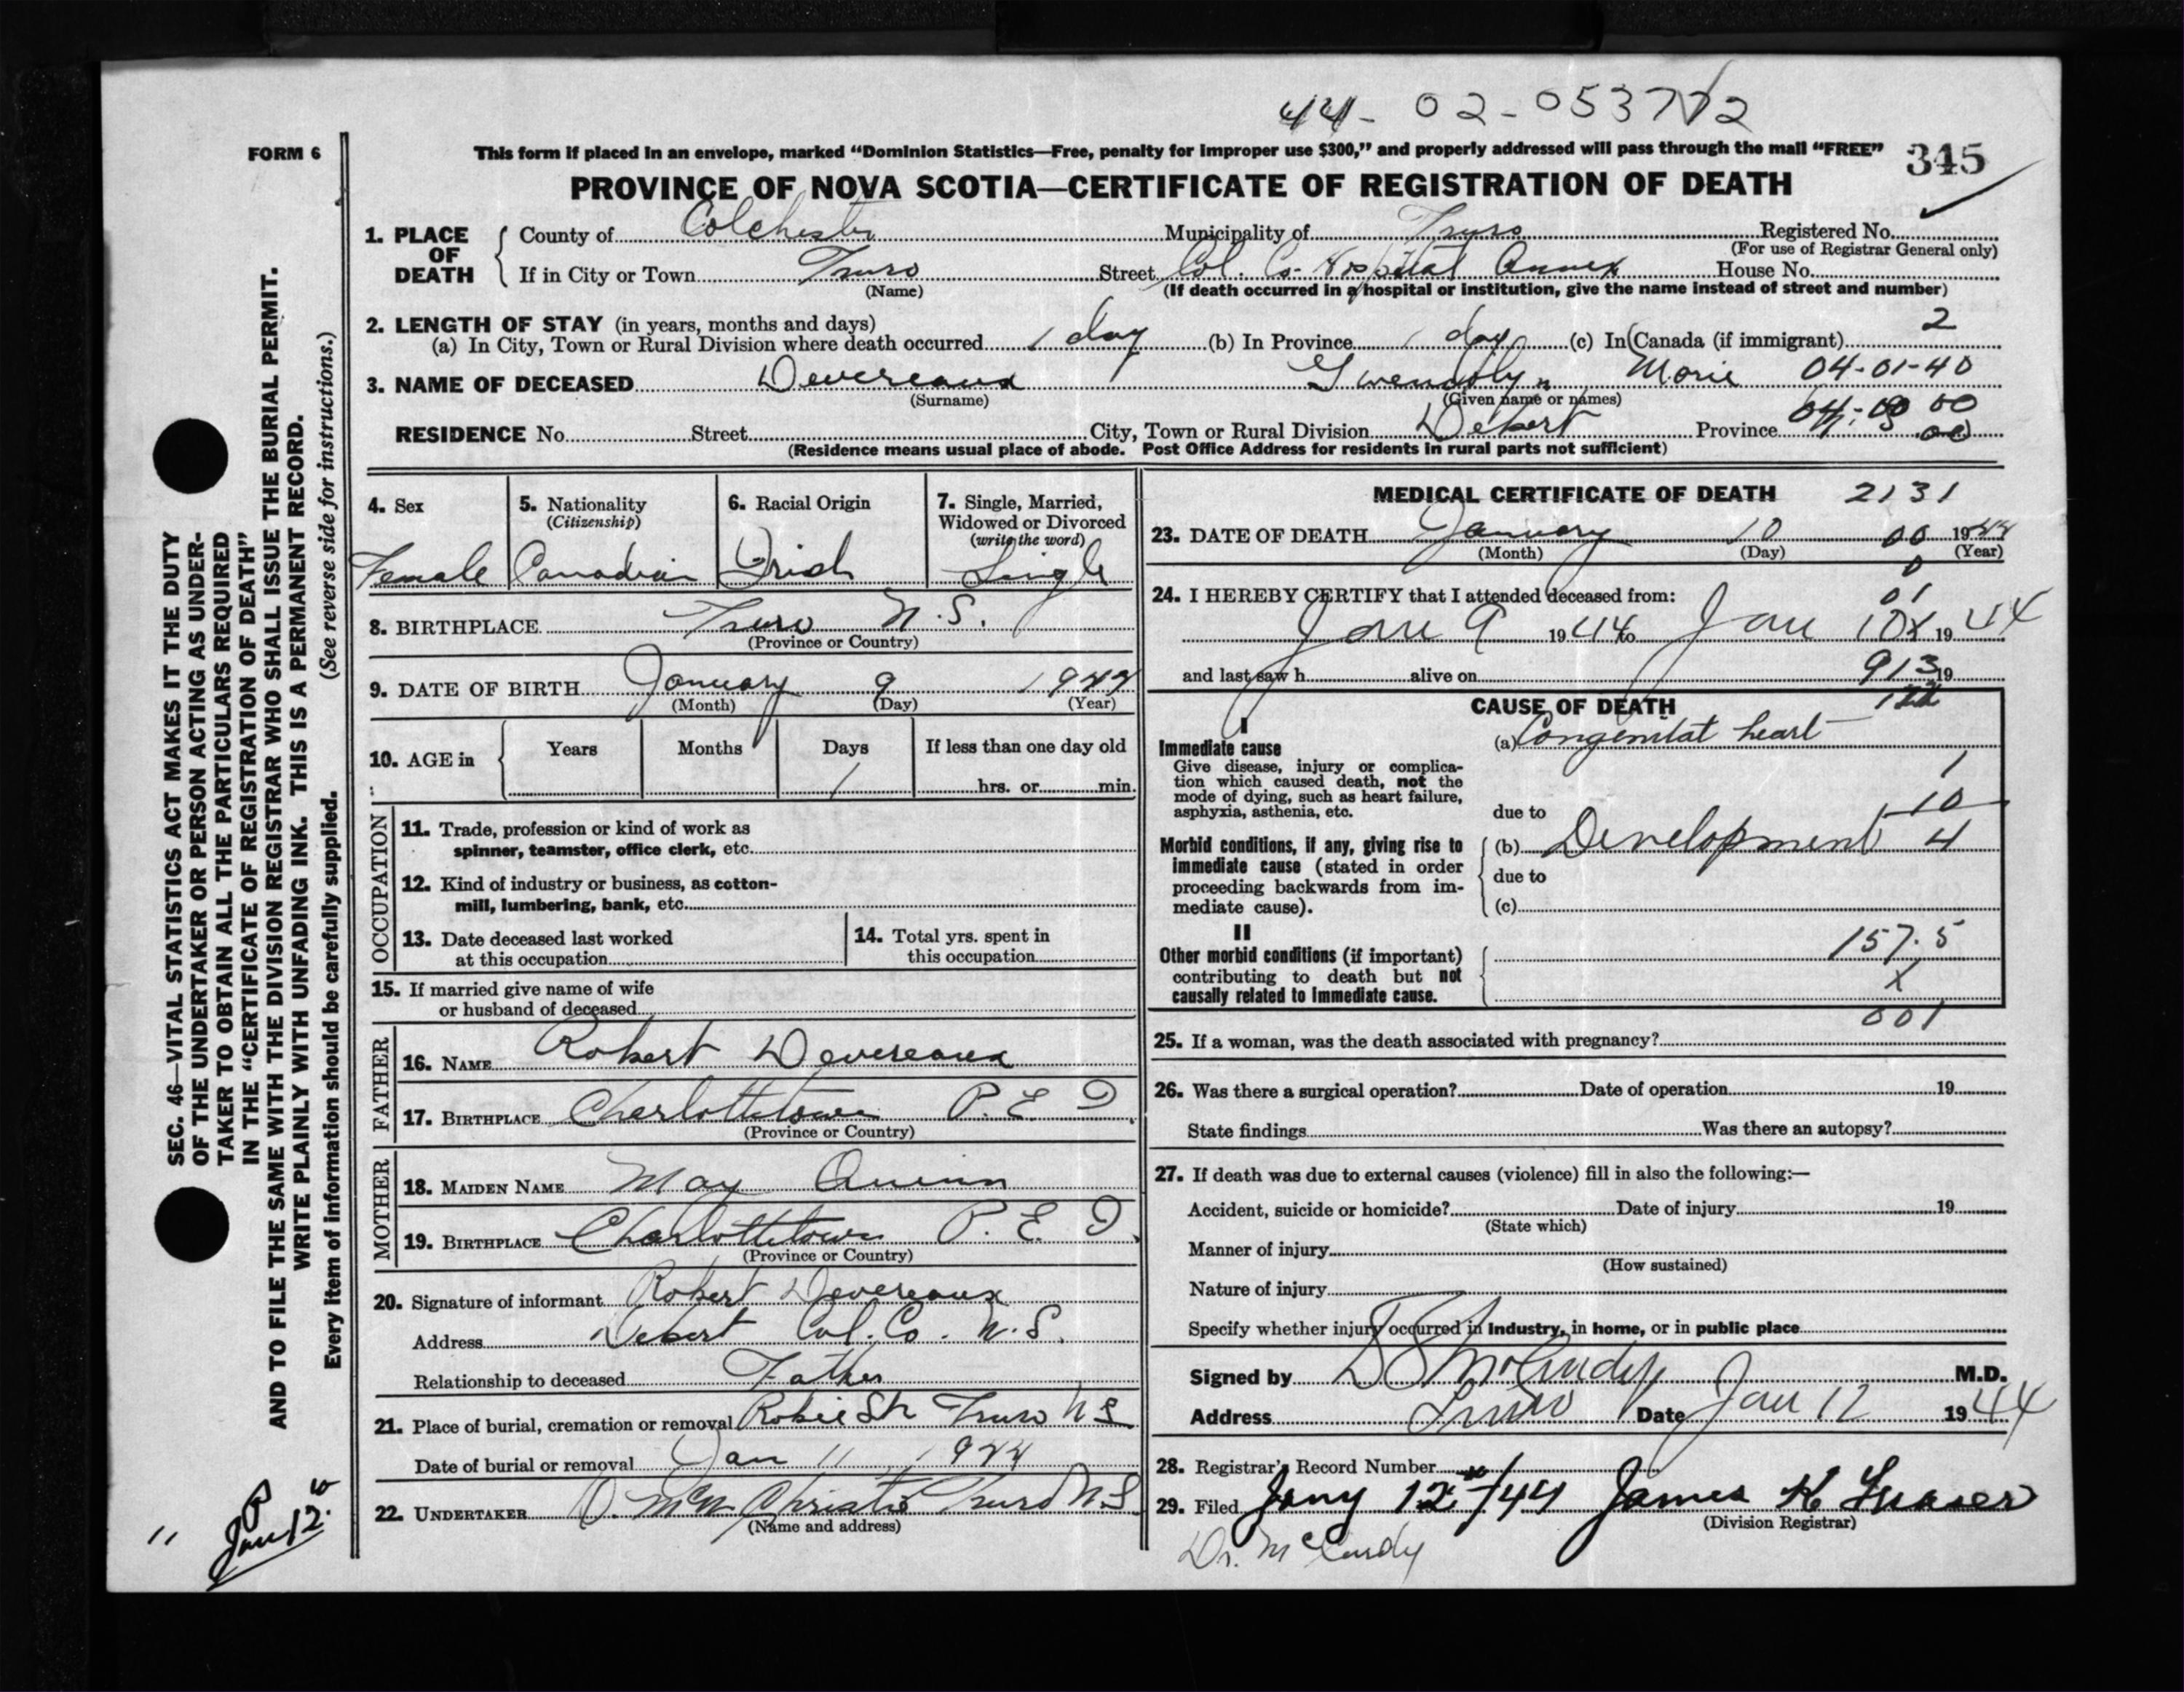 44-02-053772
FORM 6
This form if placed in an envelope, marked “Dominion Statistics—Free, penalty for improper use $300,” and properly addressed will pass through the mail “FREE” 345
PROVINCE OF NOVA SCOTIA—CERTIFICATE OF REGISTRATION OF DEATH
1. PLACE OF DEATH
County of Colchester Municipality of Truro Registered No.
(For use of Registrar General only)
If in City or Town Truro Street Col. Co. Hospital Annex House No.
(Name) (If death occurred in a hospital or institution, give the name instead of street and number)
2. LENGTH OF STAY (in years, months and days) 2
(a) In City, Town or Rural Division where death occurred 1 day (b) In Province 1 day (c) In Canada (if immigrant)
3. NAME OF DECEASED Devereaux Gwendolyn Marie 04-01-40
(Surname) (Given name or names)
RESIDENCE No. Street City, Town or Rural Division Debert Province
(Residence means usual place of abode. Post Office Address for residents in rural parts not sufficient)
4. Sex
Female
5. Nationality
(Citizenship)
Canadian
6. Racial Origin
Irish
7. Single, Married,
Widowed or Divorced
(write the word)
Single
8. BIRTHPLACE Truro N.S.
(Province or Country)
9. DATE OF BIRTH January 9 1944
(Month) (Day) (Year)
10. AGE in Years Months Days If less than one day old
1 hrs. or min.
OCCUPATION
11. Trade, profession or kind of work as
spinner, teamster, office clerk, etc.
12. Kind of industry or business, as cotton-
mill, lumbering, bank, etc.
13. Date deceased last worked
at this occupation
14. Total yrs. spent in
this occupation
15. If married give name of wife
or husband of deceased
FATHER
16. NAME Robert Devereaux
17. BIRTHPLACE Charlottetown P.E.I.
(Province or Country)
MOTHER
18. MAIDEN NAME May Quinn
19. BIRTHPLACE Charlottetown P.E.I.
(Province or Country)
20. Signature of informant Robert Devereaux
Address Debert Col. Co. N.S.
Relationship to deceased Father
21. Place of burial, cremation or removal Robie St Truro N S
Date of burial or removal Jan 11 1944
22. UNDERTAKER Christie Truro N S
(Name and address)
MEDICAL CERTIFICATE OF DEATH 2131
23. DATE OF DEATH January 10 00 1944
(Month) (Day) (Year)
24. I HEREBY CERTIFY that I attended deceased from: 01
Jan 9 1944 to Jan 10 1944
and last saw h alive on 913 19
CAUSE OF DEATH
I
Immediate cause
Give disease, injury or complica-
tion which caused death, not the
mode of dying, such as heart failure,
asphyxia, asthenia, etc.
(a) Congenital heart
1
due to 10
Morbid conditions, if any, giving rise to
immediate cause (stated in order
proceeding backwards from im-
mediate cause).
(b) Development 4
due to
(c)
II
Other morbid conditions (if important)
contributing to death but not
causally related to immediate cause.
157.5
X
001
25. If a woman, was the death associated with pregnancy?
26. Was there a surgical operation? Date of operation 19
State findings Was there an autopsy?
27. If death was due to external causes (violence) fill in also the following:—
Accident, suicide or homicide? Date of injury 19
(State which)
Manner of injury
(How sustained)
Nature of injury
Specify whether injury occurred in industry, in home, or in public place
Signed by McCurdy M.D.
Address Truro Date Jan 12 1944
28. Registrar's Record Number
29. Filed Jany 12 /44 James K Fraser
(Division Registrar)
Dr. McCurdy
SEC. 46—VITAL STATISTICS ACT MAKES IT THE DUTY
OF THE UNDERTAKER OR PERSON ACTING AS UNDER-
TAKER TO OBTAIN ALL THE PARTICULARS REQUIRED
IN THE “CERTIFICATE OF REGISTRATION OF DEATH”
AND TO FILE THE SAME WITH THE DIVISION REGISTRAR WHO SHALL ISSUE THE BURIAL PERMIT.
WRITE PLAINLY WITH UNFADING INK. THIS IS A PERMANENT RECORD.
Every item of information should be carefully supplied. (See reverse side for instructions.)
11
Jan 12